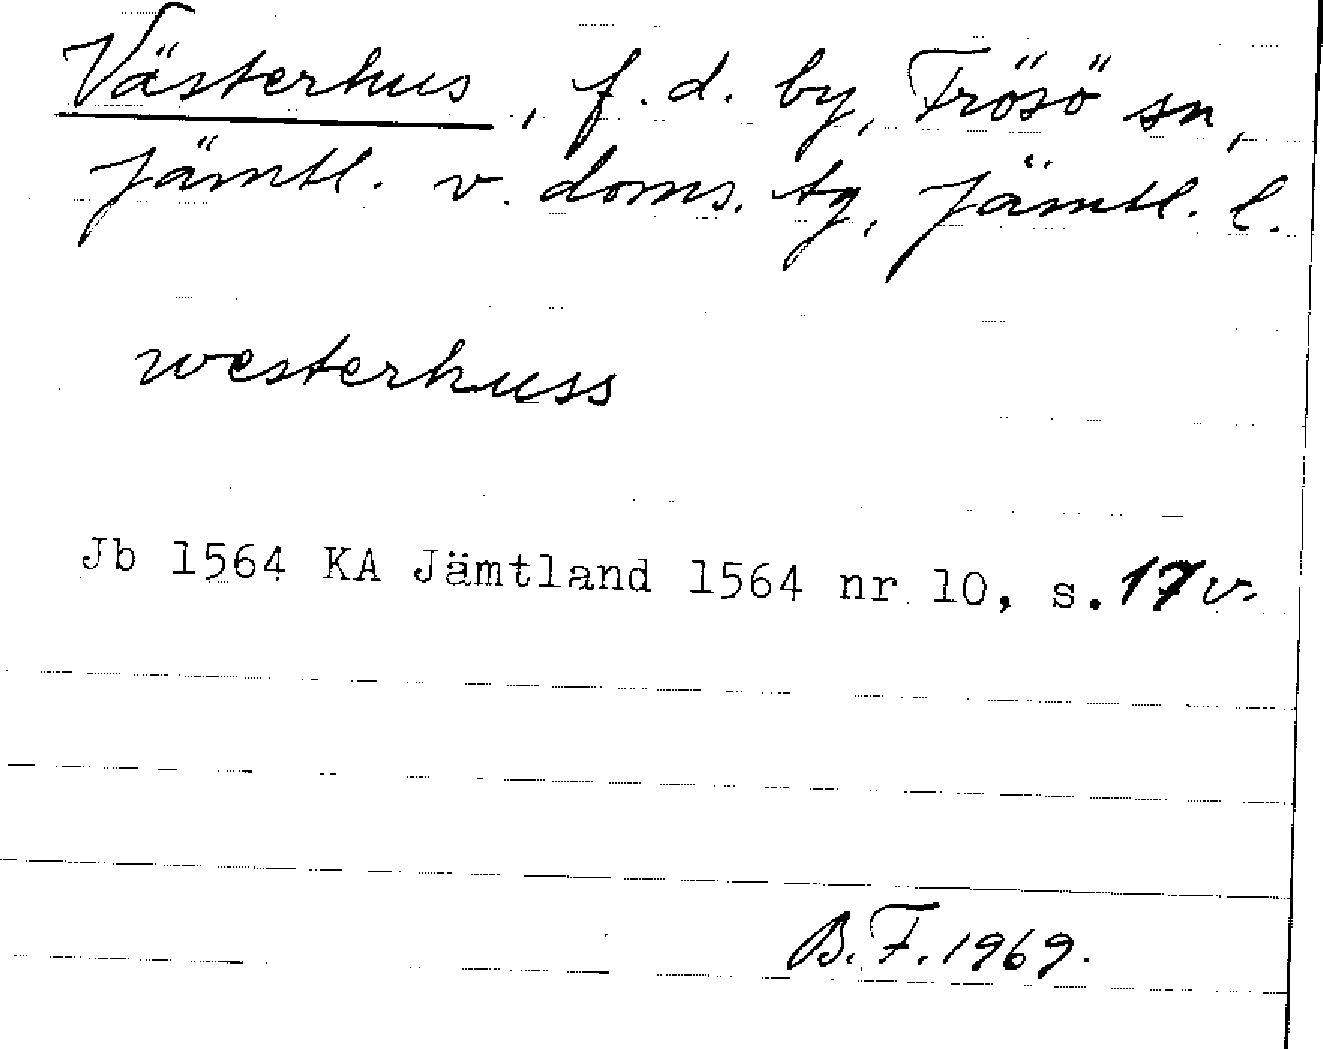 Västerhus, f.d. by, Frösö sn,
Jämtl. v. doms. tg, Jämtl. l.
westerhuss
Jb 1564 KA Jämtland 1564 nr 10, s. 17 v.
B.F. 1969.